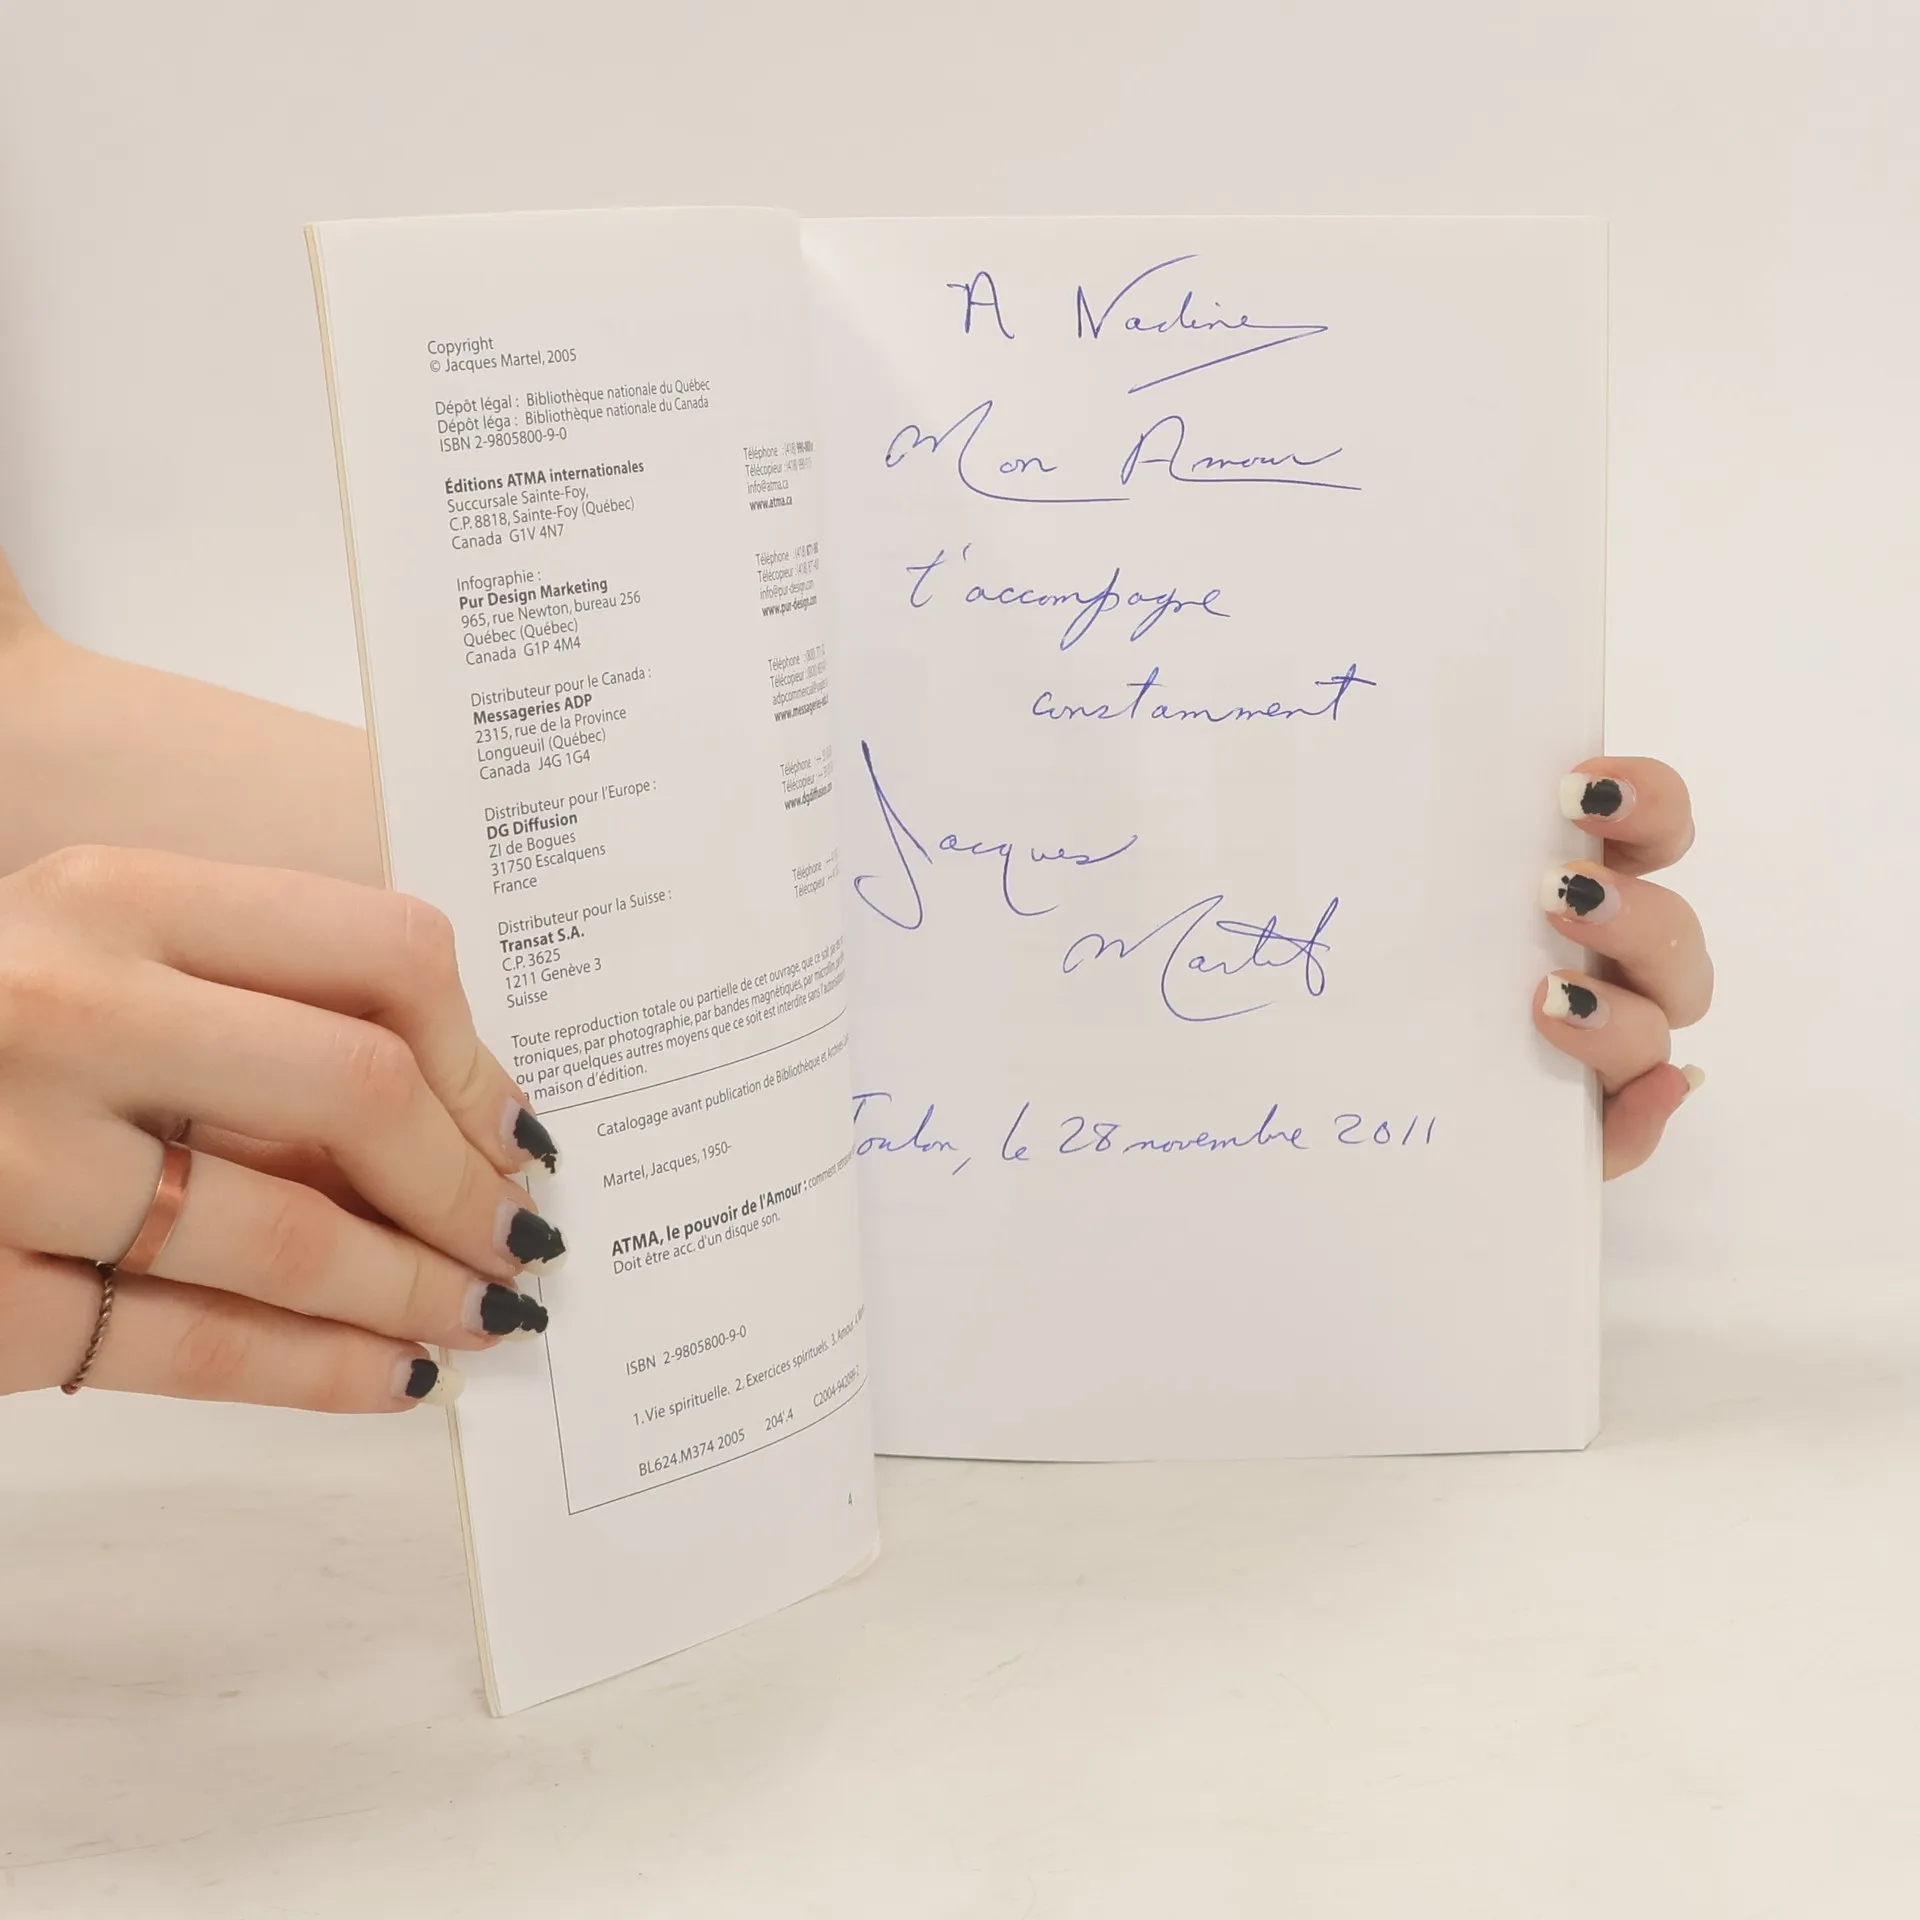 Copyright
© Jacques Martel, 2005
Dépôt légal : Bibliothèque nationale du Québec
Dépôt léga : Bibliothèque nationale du Canada
ISBN 2-9805800-9-0
Éditions ATMA internationales
Succursale Sainte-Foy,
C.P. 8818, Sainte-Foy (Québec)
Canada G1V 4N7
Téléphone : (418)
Télécopieur : (418)
info@atma.ca
www.atma.ca
Infographie :
Pur Design Marketing
965, rue Newton, bureau 256
Québec (Québec)
Canada G1P 4M4
Téléphone : (418)
Télécopieur : (418)
info@pur-design.com
www.pur-design.com
Distributeur pour le Canada :
Messageries ADP
2315, rue de la Province
Longueuil (Québec)
Canada J4G 1G4
Téléphone : (800)
Télécopieur : (800)
Distributeur pour l'Europe :
DG Diffusion
ZI de Bogues
31750 Escalquens
France
Téléphone :
Télécopieur :
www.dgdiffusion.com
Distributeur pour la Suisse :
Transat S.A.
C.P. 3625
1211 Genève 3
Suisse
Téléphone :
Télécopieur :
Toute reproduction totale ou partielle de cet ouvrage, que ce soit
troniques, par photographie, par bandes magnétiques, par microfilm
ou par quelques autres moyens que ce soit est interdite sans l'autorisation
maison d'édition.
Catalogage avant publication de Bibliothèque et Archives
Martel, Jacques, 1950-
ATMA, le pouvoir de l'Amour : comment
Doit être acc. d'un disque son.
ISBN 2-9805800-9-0
1. Vie spirituelle. 2. Exercices spirituels. 3. Amour.
BL624.M374 2005 204'.4
4
A Nadine
Mon Amour
t'accompagne
constamment
Jacques
Martel
Toulon, le 28 novembre 2011